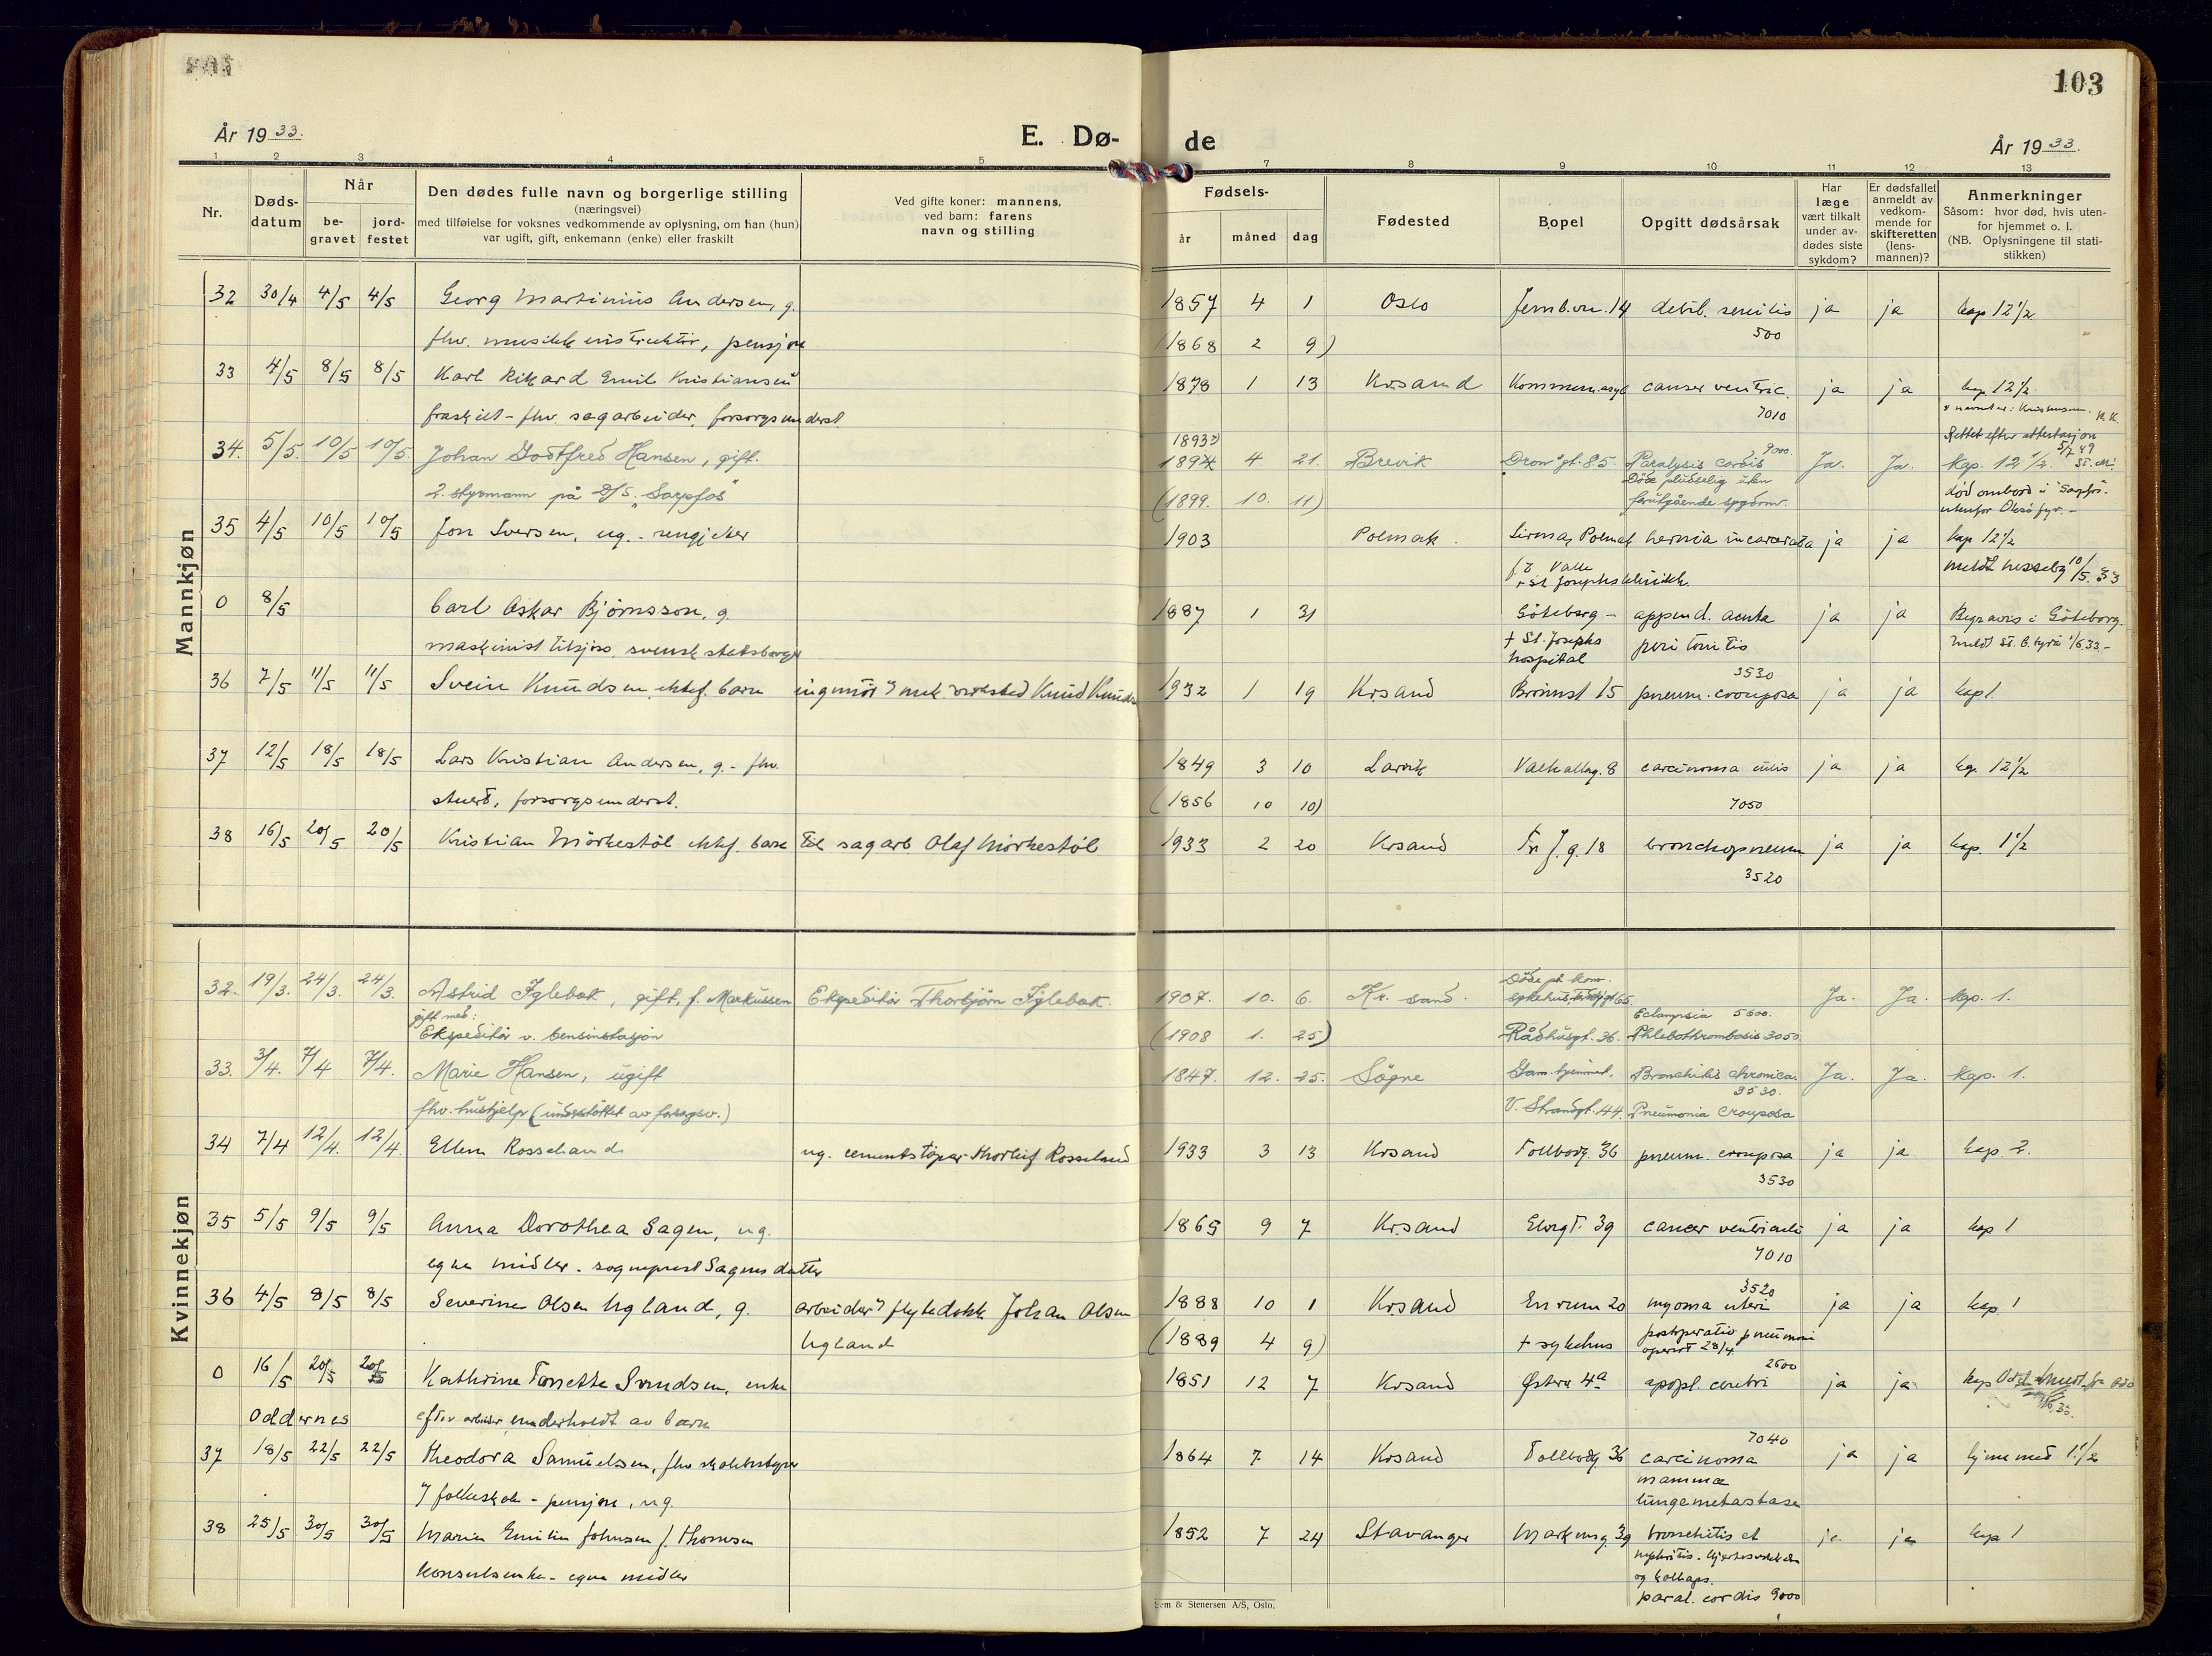 103
År 1933.
E. Dø-
de
År 1933.
1 2 3 4 5 7 8 9 10 11 12 13
Nr.
Døds-
datum
Når
be-
gravet
jord-
festet
Den dødes fulle navn og borgerlige stilling
(næringsvei)
med tilføielse for voksnes vedkommende av oplysning, om han (hun)
var ugift, gift, enkemann (enke) eller fraskilt
Ved gifte koner: mannens,
ved barn: farens
navn og stilling
Fødsels-
år måned dag
Fødested
Bopel
Opgitt dødsårsak
Har
læge
vært tilkalt
under av-
dødes siste
sykdom?
Er dødsfallet
anmeldt av
vedkom-
mende for
skifteretten
(lens-
mannen)?
Anmerkninger
Såsom: hvor død, hvis uten-
for hjemmet o. l.
(NB. Oplysningene til stati-
stikken)
Mannkjøn
32 30/4 4/5 4/5 Georg Martinius Andersen, g. 1857 4 1 Oslo Jernb.vn. 14 debil. senilis ja ja kap 12 1/2
fhv. musikkinstruktør, pensjon (1868 2 9) 500
33 4/5 8/5 8/5 Karl Rikard Emil Kristiansen 1878 1 13 Krsand Kommun.asyl cancer ventric. ja ja kap. 12 1/2
fraskilt - fhv. sagarbeider, forsorgsunderst. 7010
1893 Rettet efter attestasjon
34. 5/5. 10/5 10/5. Johan Godtfred Hansen, gift. 1894 4. 21. Brevik Dron.gt. 85. Paralysis cordis 9000. Ja. Ja. Kap. 12 1/2.
2. styrmann på D/S. "Sarpfos" (1899. 10. 11) Døde plutselig uten
forutgående sygdom. død ombord i "Sarpfos"
utenfor Oksø fyr. -
35 4/5 10/5 10/5 Jon Iversen, ug. - rengjeter 1903 Polmak. Sirma, Polmak hernia incarcerata ja ja kap 12 1/2
+ St. Josephs klinikk. meldt 10/5. 33
0 8/5 Carl Oskar Bjørnsson, g. 1887 1 31 Göteborg - append. acuta ja ja Begraves i Göteborg.
maskinist tilsjøs, svensk statsborger + St. Josephs hospital peritonitis
36 7/5 11/5 11/5 Svein Knudsen ektef. barn ingeniør v mek. verksted Knud Knudsen 1932 1 19 Krsand Brønnst 15 pneum. crouposa 3530 ja ja kap 1.
37 12/5 18/5 18/5 Lars Kristian Andersen, g. - fhv. 1849 3 10 Larvik Valhallag. 8 carcinoma cutis ja ja kg. 12 1/2
stuert, forsorgsunderst. (1856 10 10) 7050
38 16/5 20/5 20/5 Kristian Mørkestøl ektef. barn til sagarb Olaf Mørkestøl 1933 2 20 Krsand Tr J. g. 18 bronchopneum ja ja kap. 1 1/2
3520
Kvinnekjøn
32. 19/3. 24/3. 24/3. Astrid Iglebæk, gift, f. Markussen Ekspeditør Thorbjørn Iglebæk. 1907. 10. 6. Kr. sand. Døde på kom. sykehus Ja. Ja. Kap. 1.
gift med:
Ekspeditør v. bensinstasjon (1908 1. 25) Rådhusgt. 36. Eclampsia 5600. Phlebothrombosis 3050.
33. 3/4. 7/4 7/4. Marie Hansen, ugift 1847. 12. 25. Søgne Gam. hjemmet. Bronchitis chronica. Ja. Ja. Kap. 1.
fhv. hushjelp (understøttet av forsorgsv.) V. Strandgt. 44. 3530. Pneumonia crouposa
34 7/4 12/4. 12/4. Ellen Rosseland ug. cementstøper Thorleif Rosseland 1933 3 13 Krsand Tollbodg. 36 pneum. crouposa ja ja kap. 2.
3530
35 5/5 9/5 9/5 Anna Dorothea Sagen, ug. 1865 9 7 Krsand Elvegt. 39 cancer ventriculi ja ja kap 1
egne midler. sogneprest Sagens datter 7010
36 4/5 8/5 8/5 Severine Olsen Ugland, g. arbeider v flytedokk Johan Olsen 1888 10 1 Krsand Enrum 20 3520 myoma uteri ja ja kap. 1
Ugland (1889 4 9) + sykehus postoperativ pneumoni
operert 28/4.
0 16/5 20/5 20/5 Kathrine Tonette Svendsen, enke 1851 12 7 Krsand Østre 4a 2600 apopl. cerebri ja ja kap
Oddernes efter arbeider, underholdt av barn
37 18/5 22/5 22/5 Theodora Samuelsen, fhv skolebestyrer 1864 7 14 Krsand Tollbodg 36 7040 carcinoma ja ja hjemmed 1 1/2
v folkeskole - pensjon, ug. mammæ
lungemetastase
38 25/5 30/5 30/5 Maria Emilie Johnsen f. Thomsen 1852 7 24 Stavanger Markensg. 39 bronchitis et ja ja kap 1
konsulsenke - egne midler nephritis -
og kollaps.
paral. cordis 9000
Sem & Stenersen A/S, Oslo.